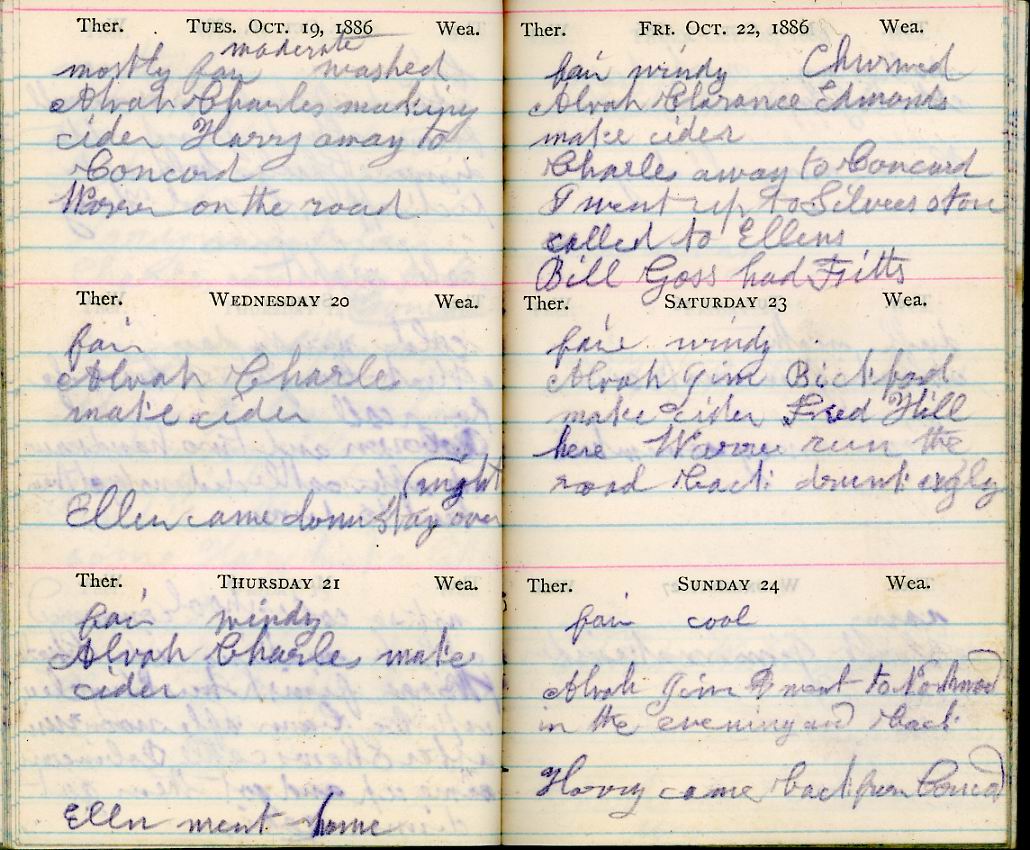 Ther. TUES. OCT. 19, 1886 Wea.
moderate
mostly fair washed
Alvah Charles making
cider Harry away to
Concord
on the road
Ther. WEDNESDAY 20 Wea.
fair
Alvah Charles
make cider
night
Ellen came down stay over
Ther. THURSDAY 21 Wea.
fair windy
Alvah Charles make
cider
Ellen went home
Ther. FRI. OCT. 22, 1886 Wea.
fair windy Churned
Alvah Clarance Edmonds
make cider
Charles away to Concord
I went up to Silvees store
called to Ellens
Bill Goss had Fitts
Ther. SATURDAY 23 Wea.
fair windy
Alvah Gim Bickford
make cider Fred Hill
here run the
road back drunk ugly
Ther. SUNDAY 24 Wea.
fair cool
Alvah Gim I went to Northwood
in the evening and back
Harry came back from Concord